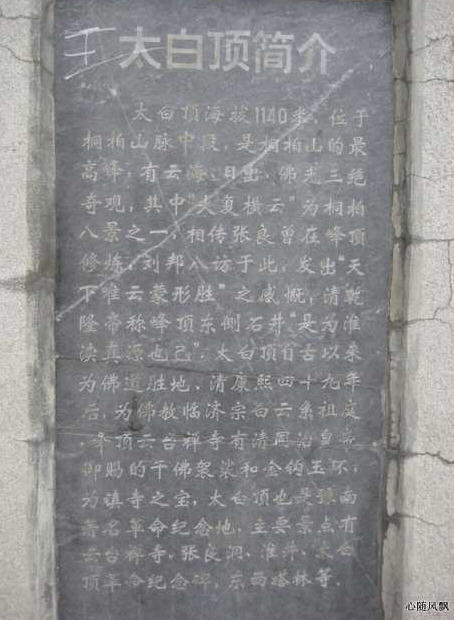 太白顶简介
太白顶海拔1140米，位于
桐柏山脉中段，是桐柏山的最
高锋；有云海、日出、佛光三绝
奇观，其中“大复横云”为桐柏
八景之一，相传张良曾在峰顶
修炼，刘邦八访于此，发出“天
下唯云蒙形胜”之感慨，清乾
隆帝称峰顶东侧石井“是为淮
渎真源也已”。太白顶自古以来
为佛道胜地、清康熙四十九年
后，为佛教临济宗白云系祖庭
峰顶云台禅寺有清同治皇帝
御赐的千佛袈裟和金钩玉环；
为镇寺之宝，太白顶也是豫南
著名革命纪念地，主要景点有
云台禅寺、张良洞、淮井、太白
顶革命纪念碑，东西塔林等．
心随风飘